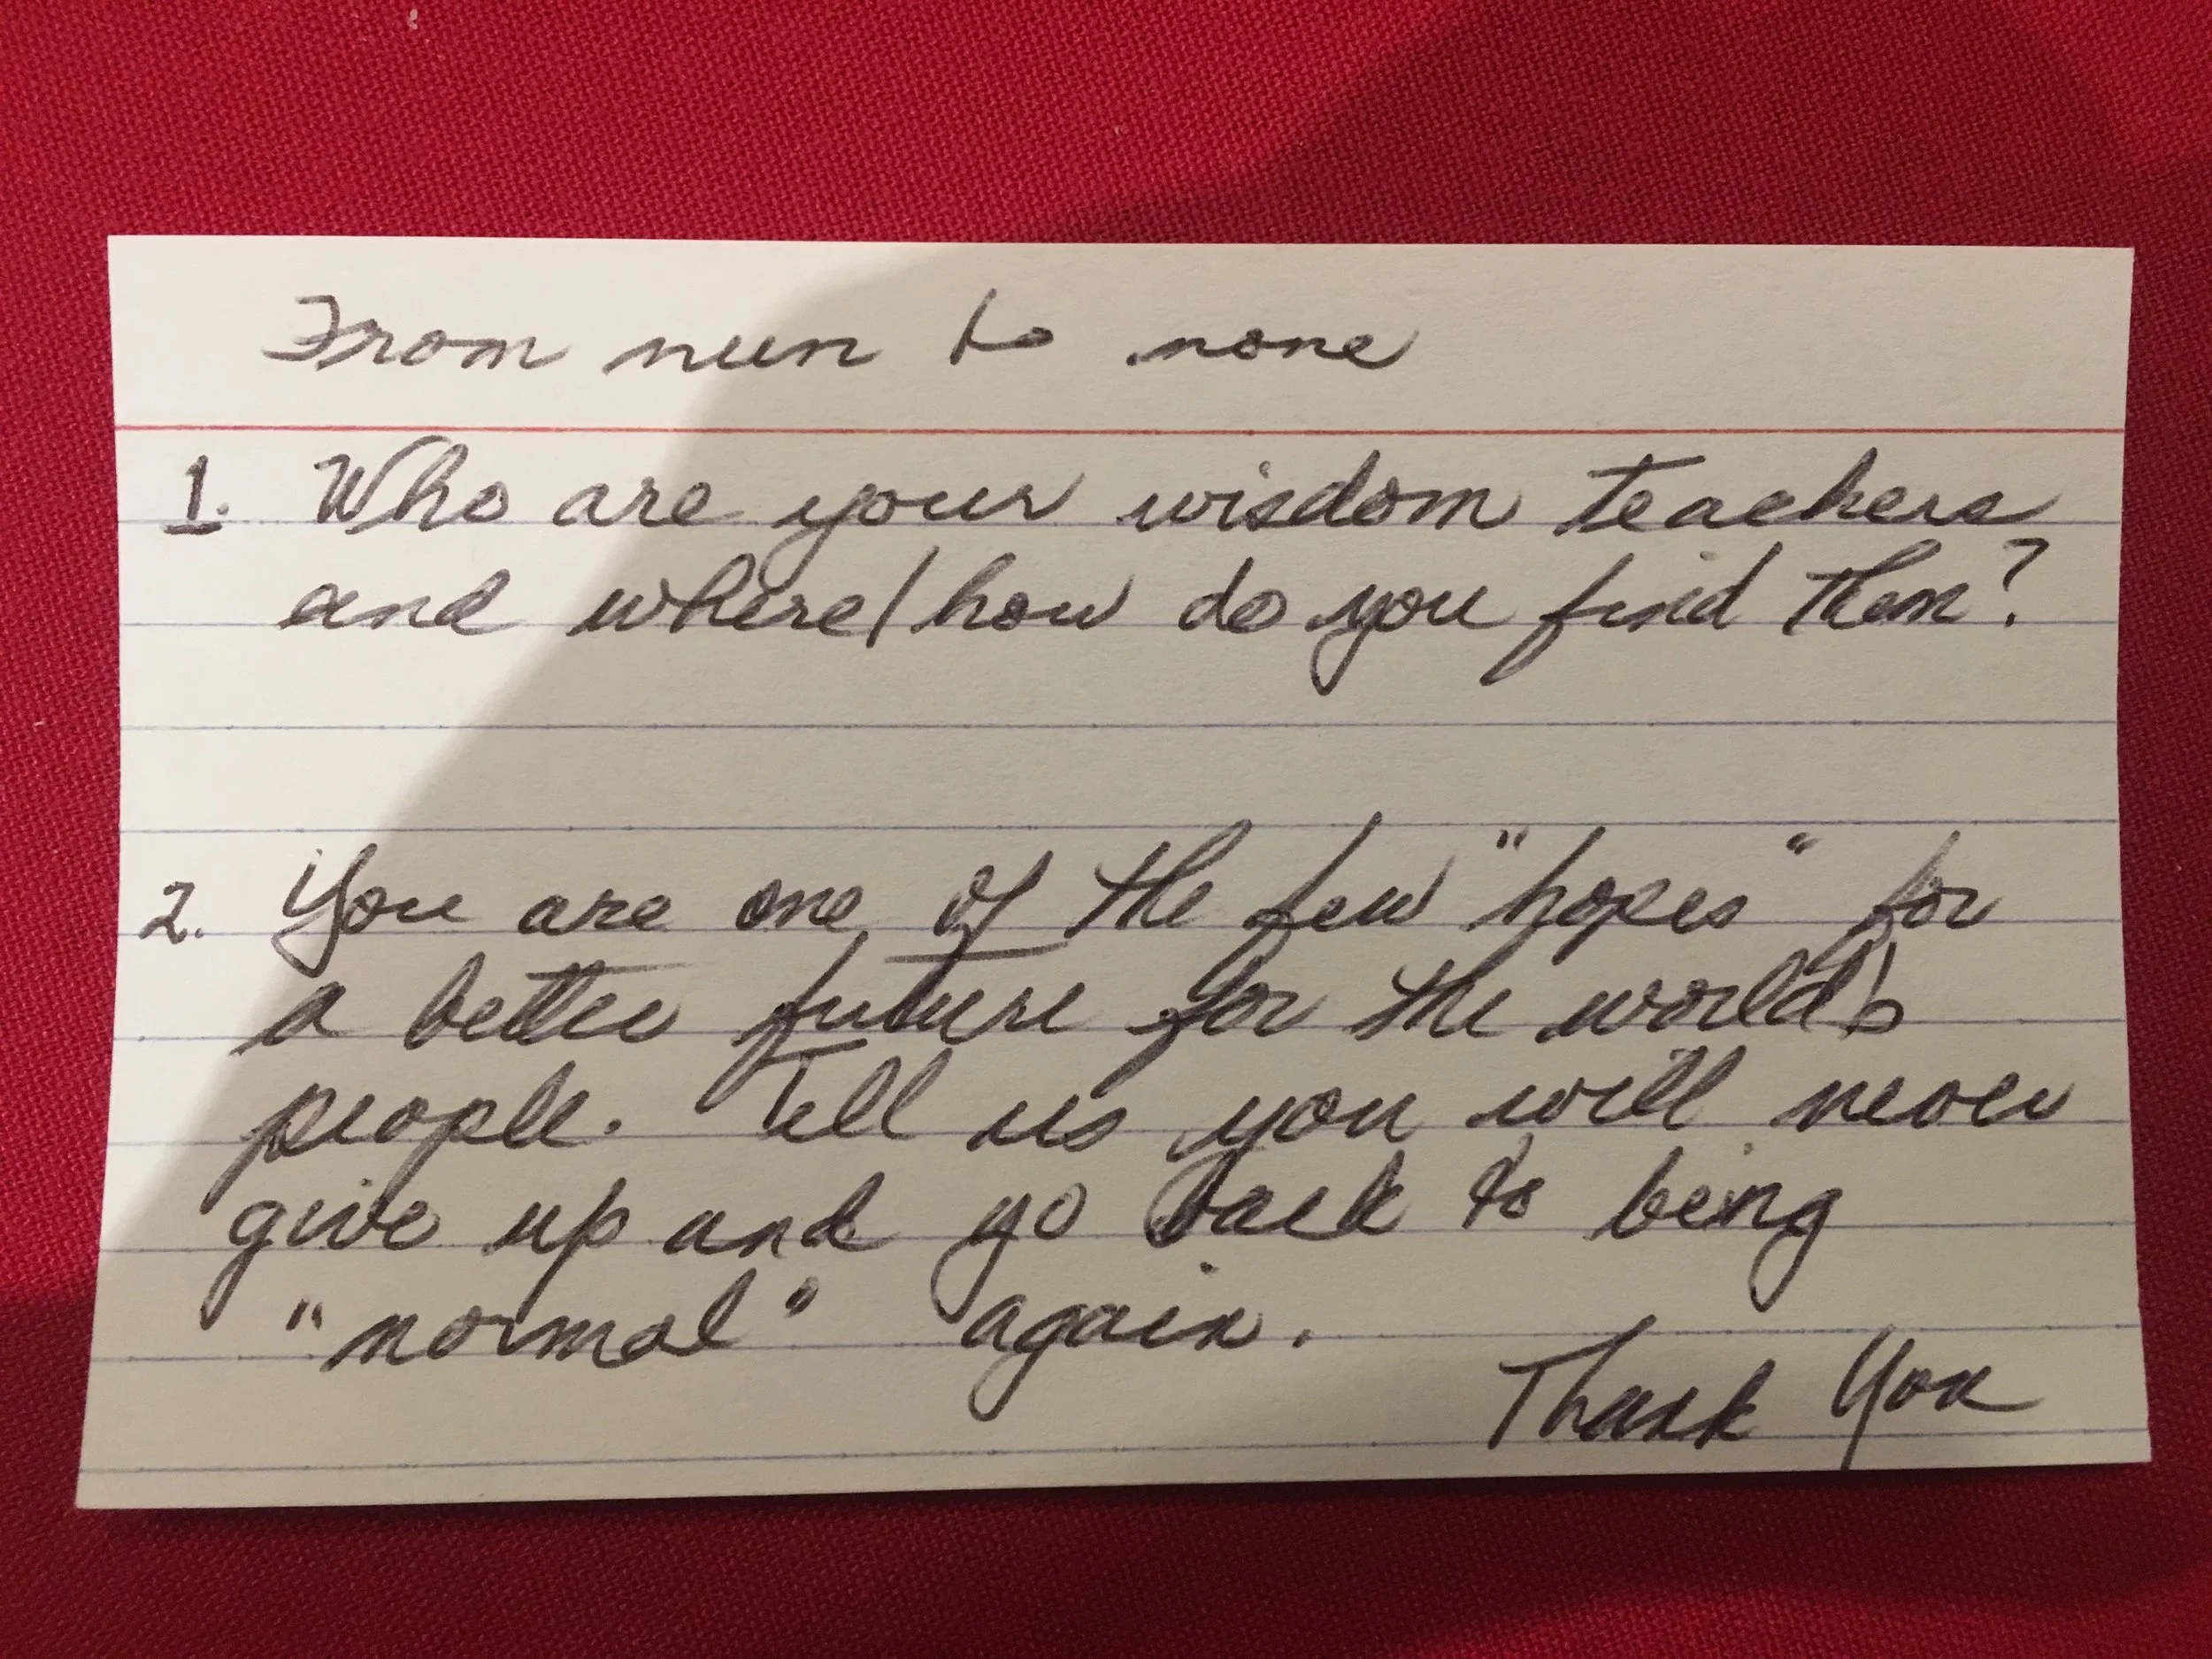 From nun to none
1. Who are your wisdom teachers
and where/how do you find them?
2. You are one of the few "hopes" for
a better future for the world's
people. Tell us you will never
give up and go back to being
"normal" again.
Thank You